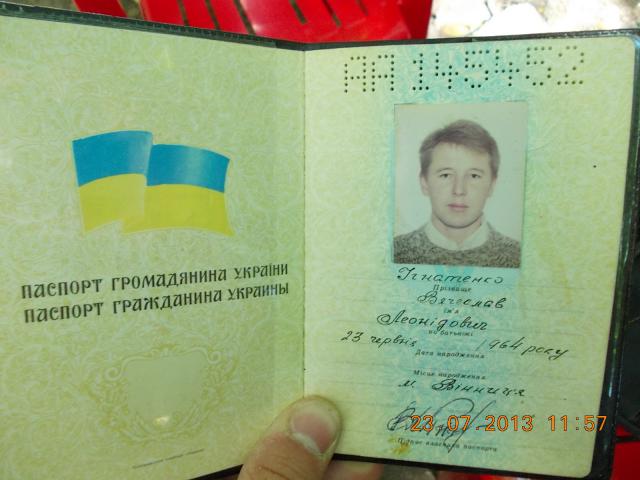 ПАСПОРТ ГРОМАДЯНИНА УКРАЇНИ
ПАСПОРТ ГРАЖДАНИНА УКРАИНЫ
АА 145452
Ігнатенко
Прізвище
Вячеслав
ім'я
Леонідович
по батькові
23 червня 1964 року
Дата народження
Місце народження
м. Вінниця
Підпис власника паспорта
23.07.2013 11:57